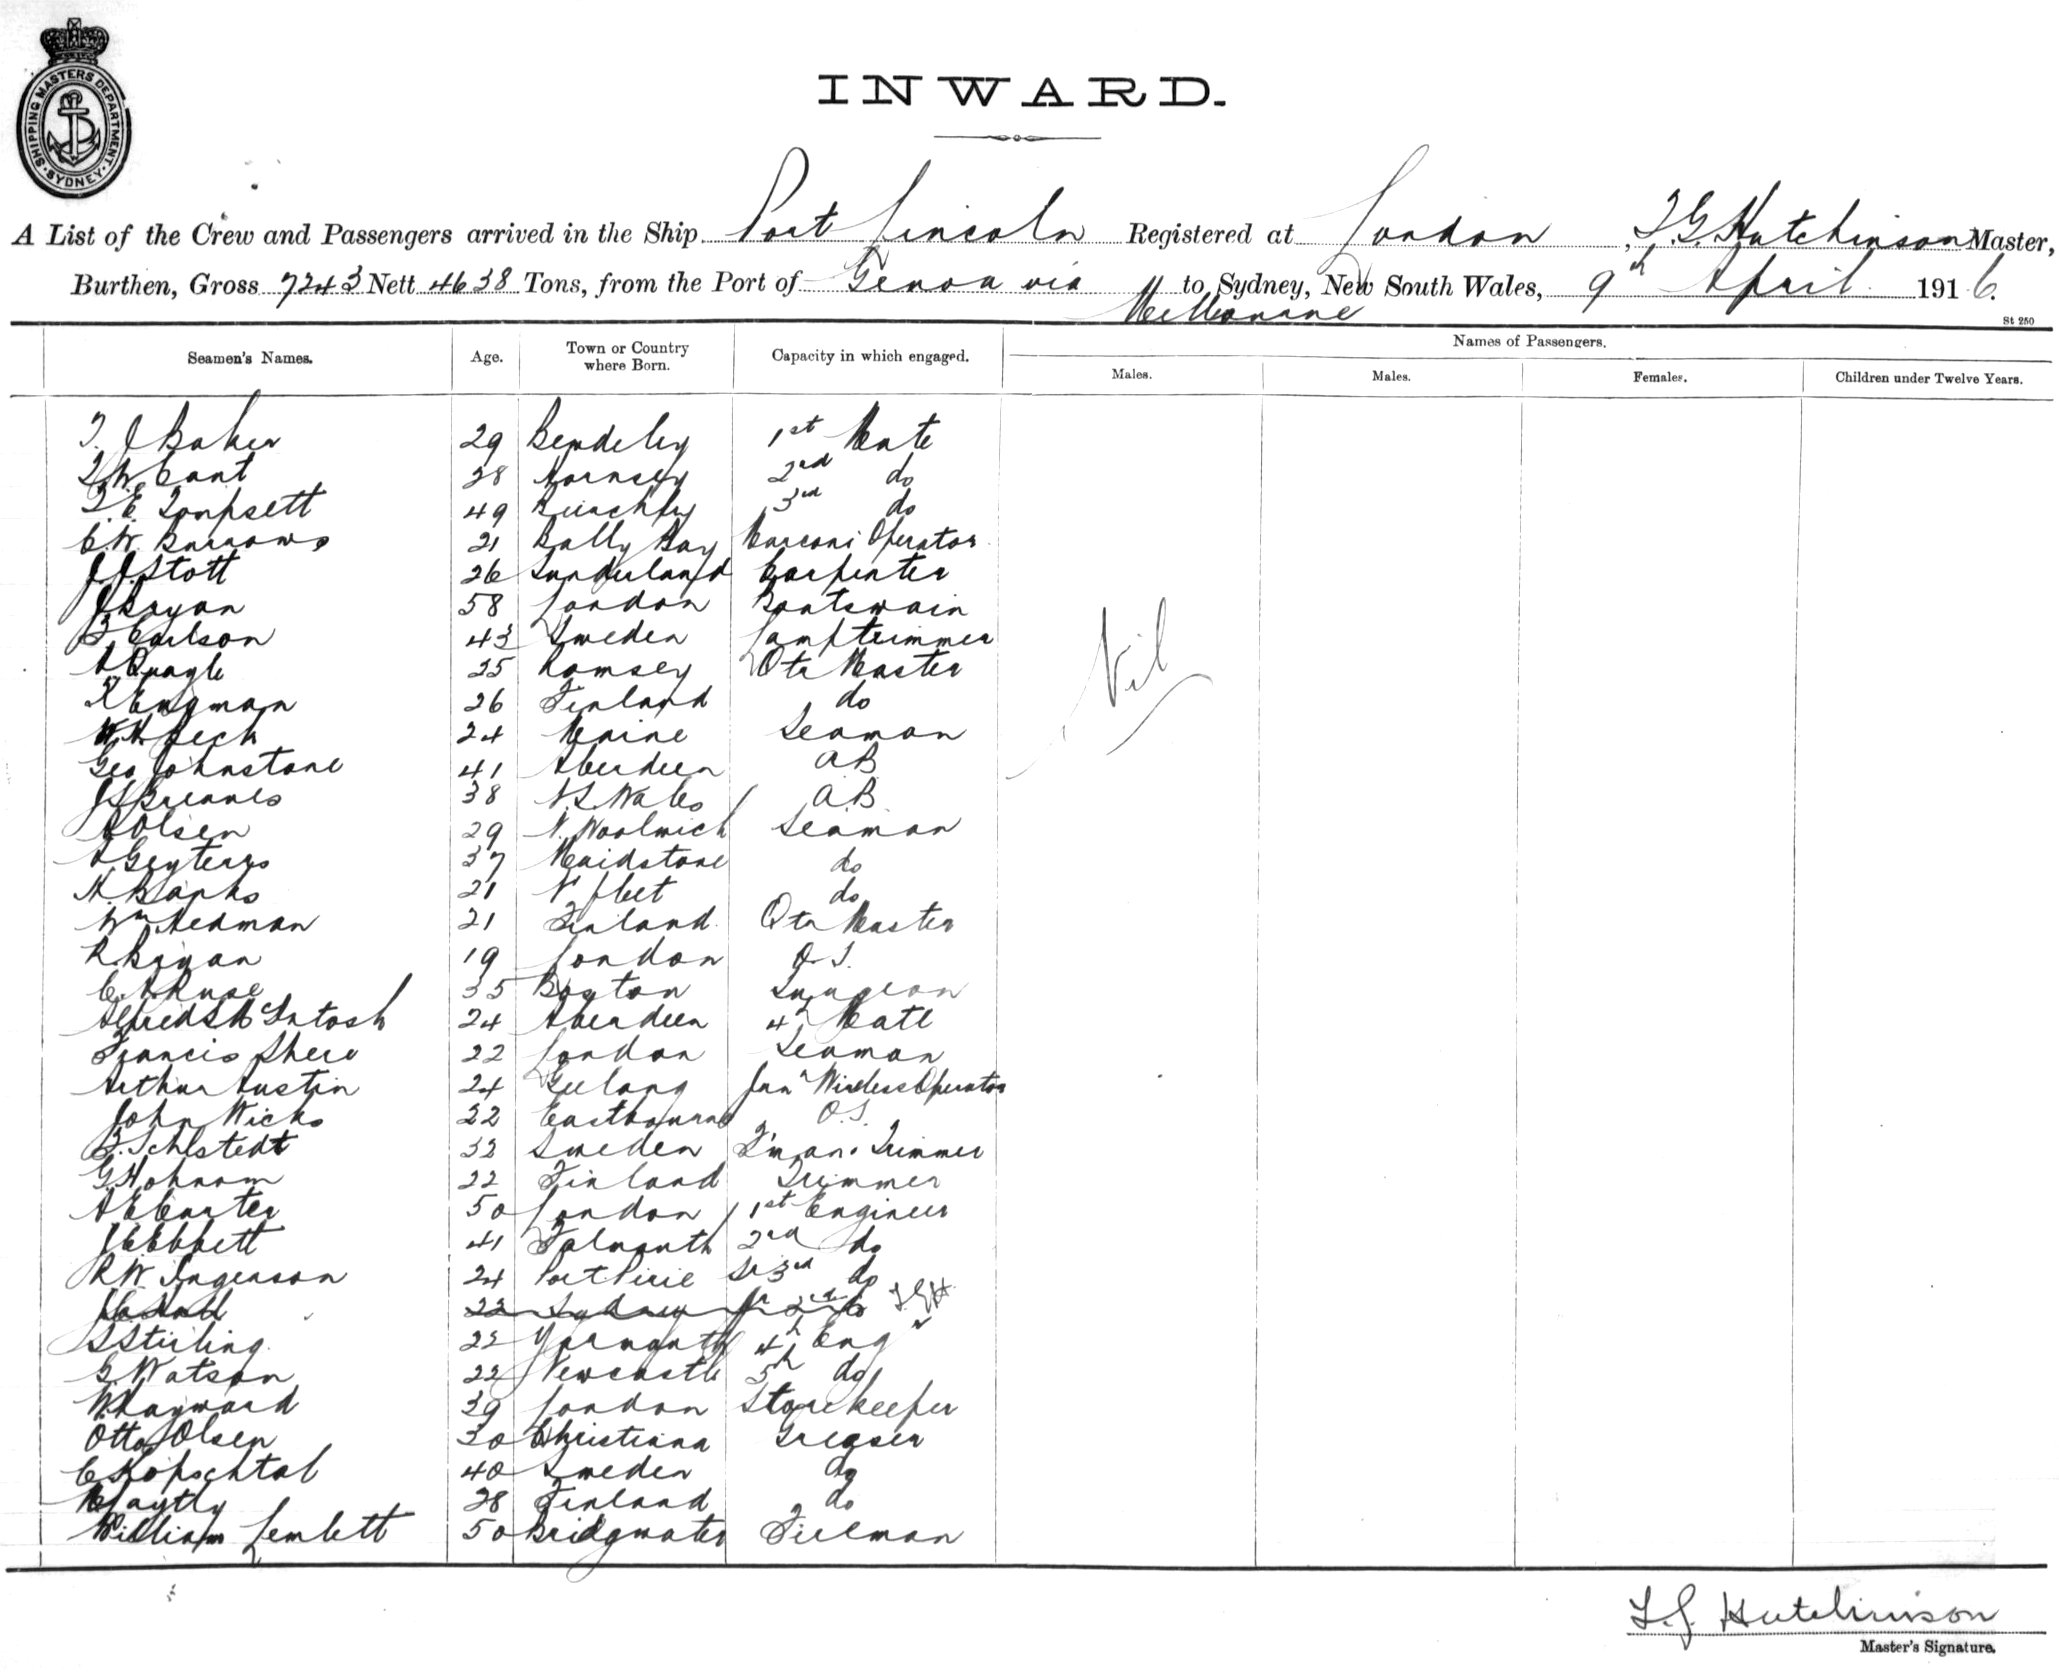 SHIPPING MASTERS DEPARTMENT.
SYDNEY.
INWARD.
A List of the Crew and Passengers arrived in the Ship Port Lincoln Registered at London, T. G. Hutchinson Master,
Burthen, Gross 7243 Nett 4638 Tons, from the Port of Genoa via Melbourne to Sydney, New South Wales, 9th April 1916.
St 250
Seamen's Names. Age. Town or Country where Born. Capacity in which engaged. Names of Passengers.
Males. Males. Females. Children under Twelve Years.
T. J Baker 29 Bewdeley 1st Mate
T. W. Cant 28 Hornsey 2nd do
T. E. Tompsett 49 3rd do
C. W. Burrows 21 Bally Bay Marconi Operator
J. J. Stott 26 Sunderland Carpenter
J Bryan 58 London Boatswain
B Carlson 43 Sweden Lamptrimmer
A Quayle 25 Ramsey Qtr Master
K Engman 26 Finland do
W. H. Peck 24 Maine Seaman
Geo Johnstone 41 Aberdeen AB
38 N. S. Wales A.B
A Olsen 29 N. Woolwich Seaman
37 Maidstone do
H. Banks 21 N' fleet do
Wm Hedman 21 Finland Qtr Master
R. Bryan 19 London O. S.
C. A Ruse 35 Boston Surgeon
Alfred S McIntosh 24 Aberdeen 4th Mate
Francis Shere 22 London Seaman
Arthur Austin 24 Geelong Junr Wireless Operator
John Wicks 22 Eastbourne O. S.
B. Sehlstedt 32 Sweden F'man & Trimmer
22 Finland Trimmer
A E Carter 50 London 1st Engineer
J C Ebbett 41 Falmouth 2nd do
R W. Ingerson 24 Port Pirie Sr 3rd do
22 Sydney Jr 3rd do TGH
S Stirling 22 Yarmouth 4th Engr
G. Watson 22 Newcastle 5th do
W. Hayward 39 London Storekeeper
Otto Olsen 30 Christiana Greaser
C Kopschtal 40 Sweden do
28 Finland do
William Lemlett 50 Bridgwater Fireman
Nil
T. G. Hutchinson
Master's Signature.